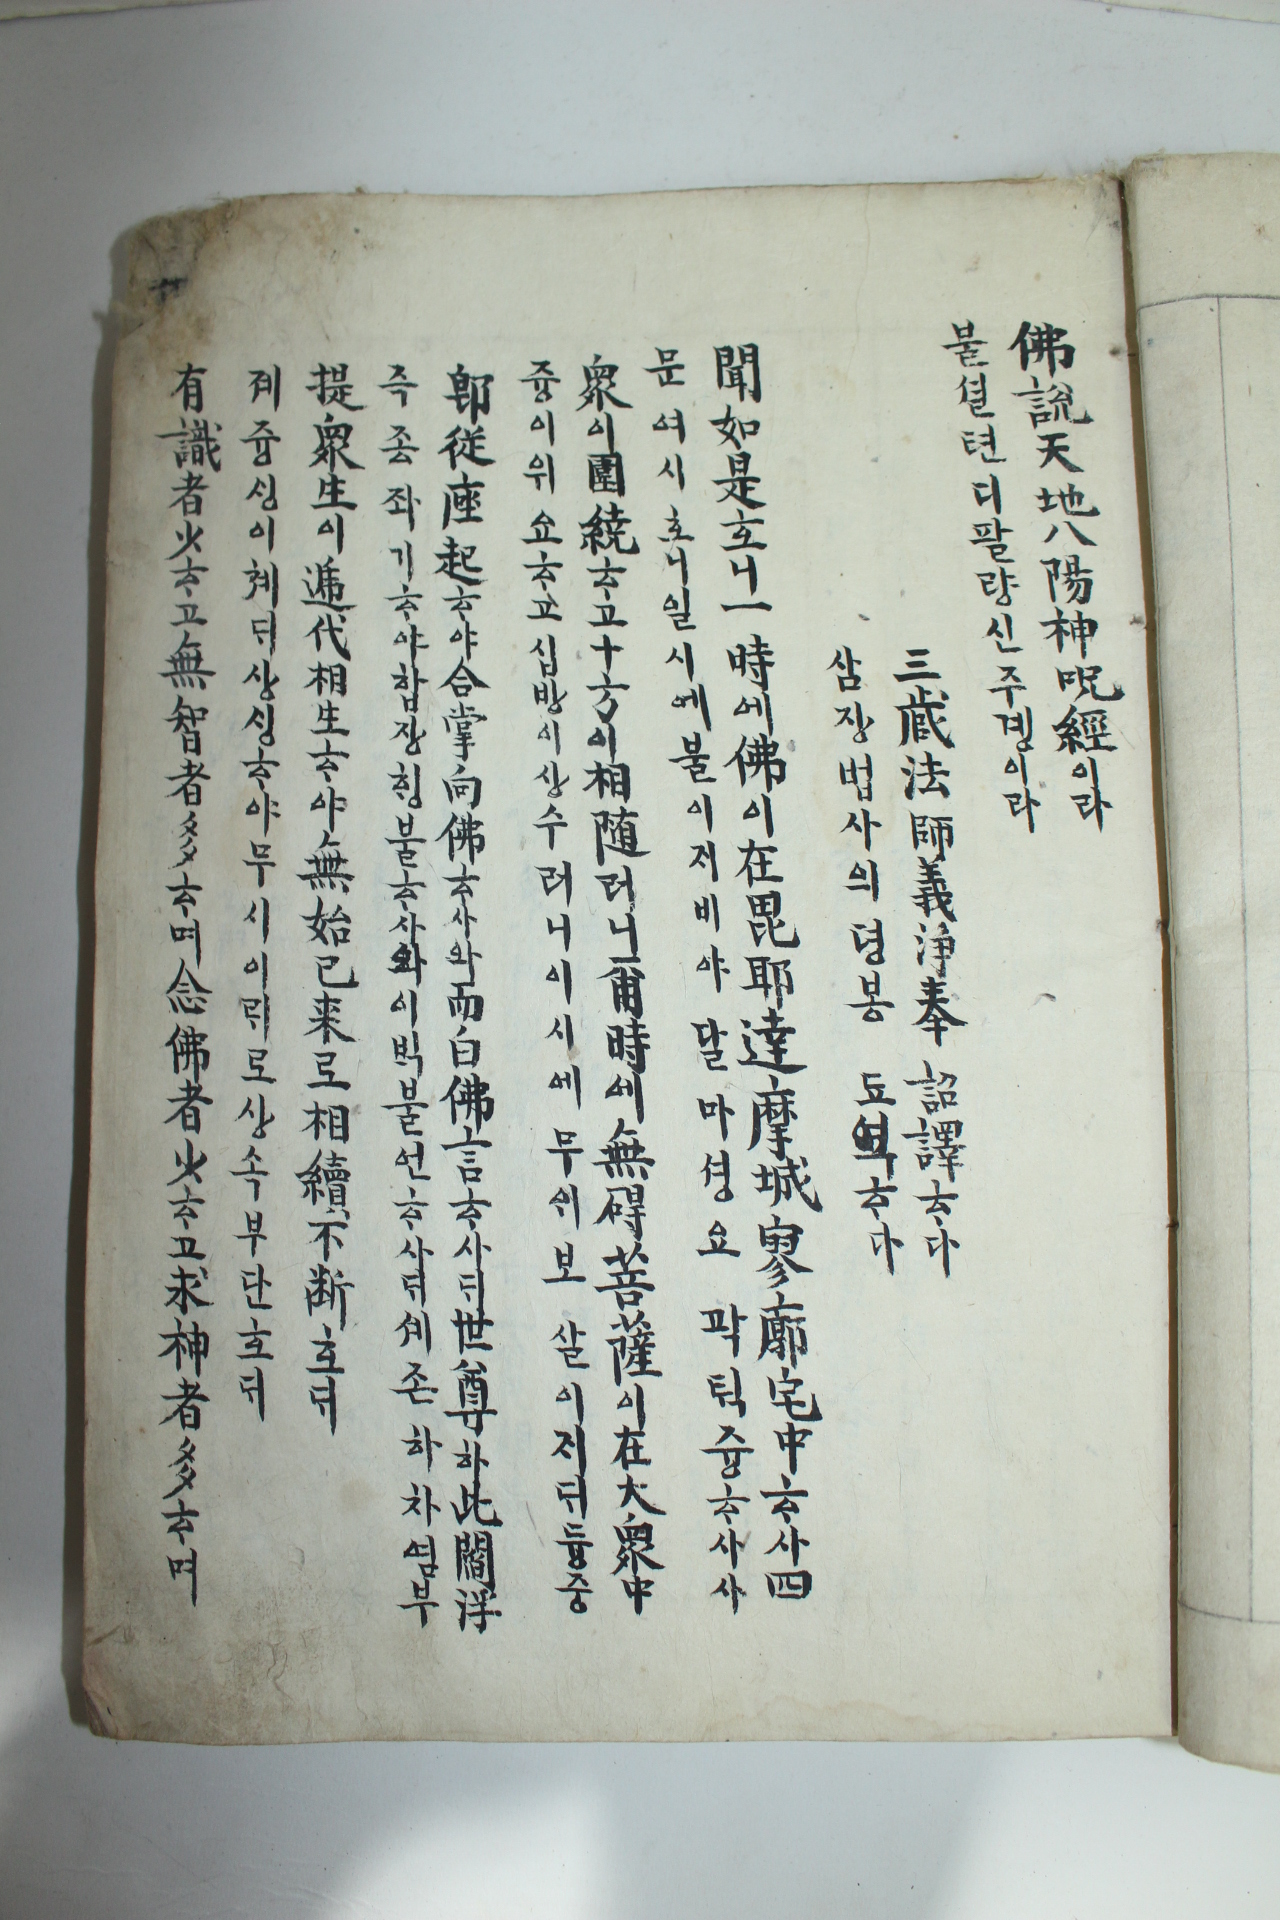 佛說天地八陽神呪經이라
불셜텬디팔량신주경이라
三藏法師義淨奉 詔譯ᄒᆞ다
삼장법사의뎡봉 됴역ᄒᆞ다
聞如是호니一時에佛이在毘耶達摩城寥廓宅中ᄒᆞ사四
문여시호니일시에불이저비야달마셩요곽ᄐᆡᆨ즁ᄒᆞ사사
衆이圍繞ᄒᆞ고十方이相隨러니爾時에無碍菩薩이在大衆中
즁이위요ᄒᆞ고십방이상수러니이시에무ᄋᆡ보살이저ᄃᆡ듕중
卽從座起ᄒᆞ야合掌向佛ᄒᆞ사와而白佛言ᄒᆞ사ᄃᆡ世尊하此閻浮
즉종좌기ᄒᆞ야합장향불ᄒᆞ사와이ᄇᆡᆨ불언ᄒᆞ사ᄃᆡ셰존하차염부
提衆生이遞代相生ᄒᆞ야無始已來로相續不断호ᄃᆡ
졔즁ᄉᆡᆼ이쳬ᄃᆡ상ᄉᆡᆼᄒᆞ야무시이ᄅᆡ로상속부단호ᄃᆡ
有識者少ᄒᆞ고無智者多ᄒᆞ며念佛者少ᄒᆞ고求神者多ᄒᆞ며